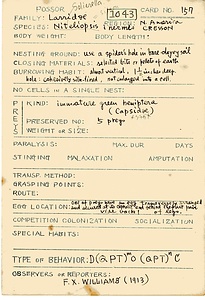 POSSOR Solierella CARD NO. 157
FAMILY: Larridae 1043 REGION: N. America
SPECIES: Niteliopsis inermis CRESSON
BODY WEIGHT: BODY LENGTH:
NESTING GROUND: use a spider's hole in bare clayey soil
CLOSING MATERIALS: selected bits or pellets of earth
BURROWING HABIT: short vertical, 1½ inches deep.
hole: not enlarged into a cell.
NO CELLS IN A SINGLE NEST:
PREY KIND: immature green hemiptera
(Capsidae)
PRESERVED NO: 5 preys
WEIGHT OR SIZE:
PARALYSIS: MAX. DUR DAYS
STINGING MALAXATION AMPUTATION
TRANSP. METHOD:
GRASPING POINTS:
ROUTE:
EGG LOCATION:
COMPETITION COLONIZATION SOCIALIZATION
SPECIAL HABITS:
TYPE OF BEHAVIOR:
OBSERVERS OR REPORTERS:
F.X. WILLIAMS (1913)